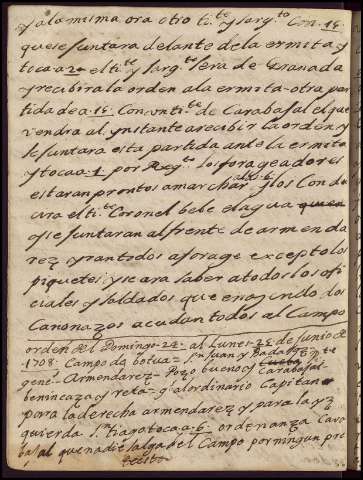 y ala misma ora otro ti.te y sarg.to Con. 15.
que se juntara delante dela ermita y
toca a 20 el ti.te y sarg.to sera de Granada
y recibira la orden ala ermita otra par
tida de a. 15. Con un ti.te de Carabajal el que
vendra al ynstante arecibir la orden y
se juntara esta partida ante la ermita
y toca a 1 por Reg.to los forageadores
estaran prontos amarchar alas 6. y los Con du
cira el ti.te Coronel bebe el agua
y se juntaran al frente de armenda
rez y ran todos aforage excepto los
piquetes y se ara saber a todos los ofi
ciales y soldados que en oyendo los
Canonazos acudan todos al Campo
orden del Domingo 24 al Lunes 25 de junio de
1708. Campo da botua = s.n Juan y Badajoz
gene. Armendarez = Pozo bueno y Carabajal
benincaza y reta = g.l alordinario Capitan
para la derecha armendarez y para la yz
quierda s.n tiago toca a 6. ordenianza Cara
bajal que nadie salga del Campo por ningun pre
testo